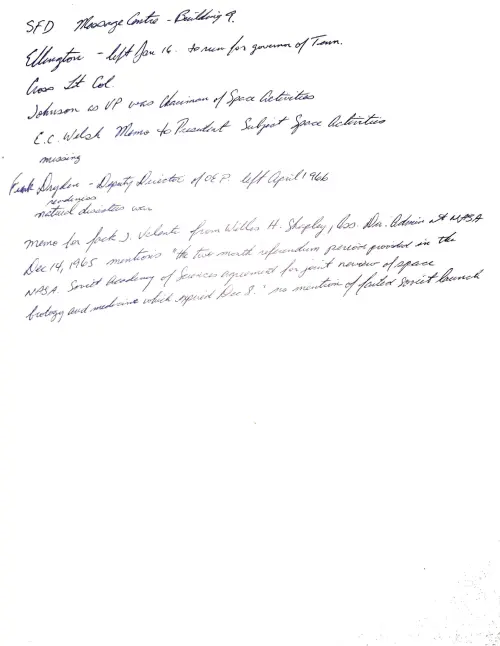 SFD Message Centre - Building 9.
Ellington - left Jan 16. to run for governor of Tenn.
Cross Lt Col.
Johnson as VP was Chairman of Space Activities
E.C. Welsh Memo to President Subject Space Activities
missing
Frank Dryden - Deputy Director of OEP. left April 1966
readiness
natural disasters war
memo for Jack J. Valenti from Willis H. Shapley, Ass. Dep. Admin at NASA
Dec 14, 1965 mentions "the two month referendum period provided in the
NASA. Soviet Academy of Sciences agreement for joint review of space
biology and medicine which expired Dec 8." no mention of failed Soviet launch